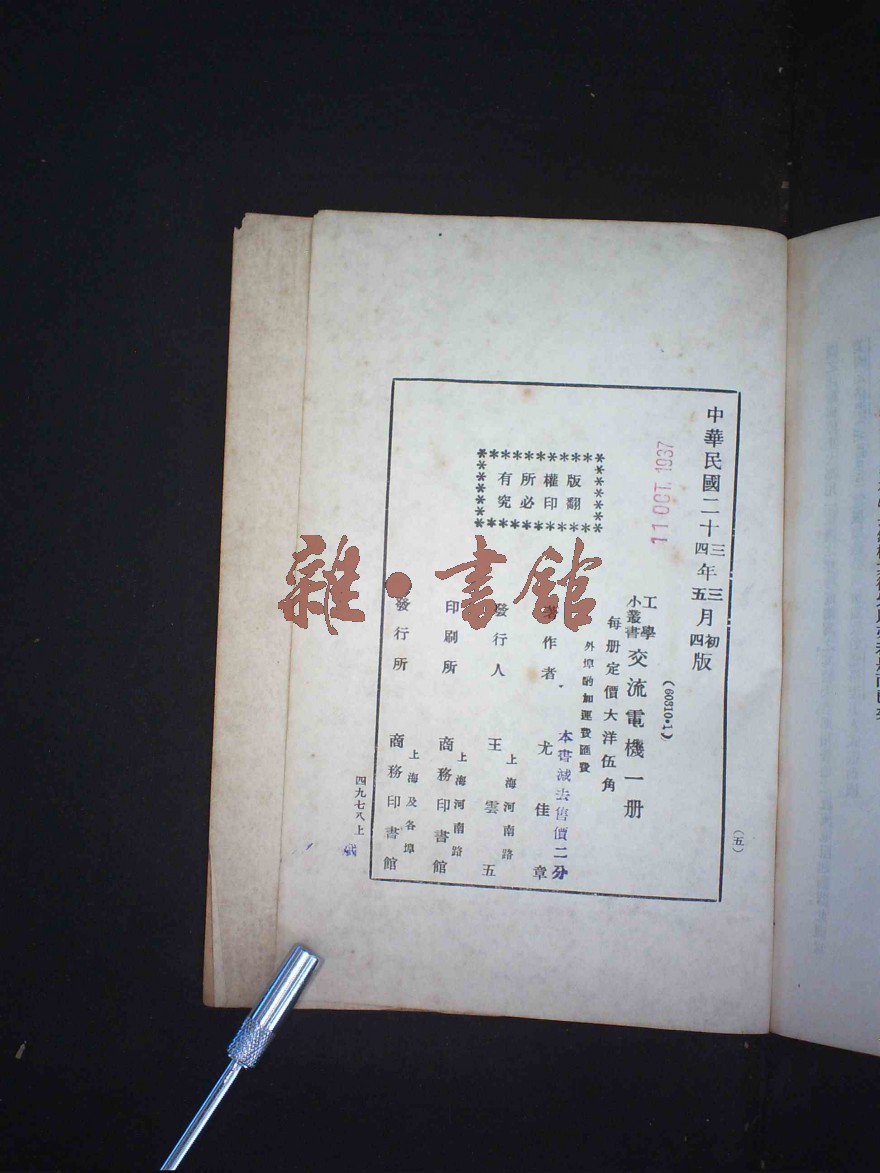 中華民國二十三年三月初版
四年五月四版
11 OCT. 1937
(60310·1)
工學小叢書 交流電機一册
每册定價大洋伍角
外埠酌加運費匯費
本書減去售價二分
版權所有
翻印必究
著作者 尤佳章
發行人 王雲五
上海河南路
印刷所 商務印書館
上海河南路
發行所 商務印書館
上海及各埠
(五)
四九七八上
雜·書館